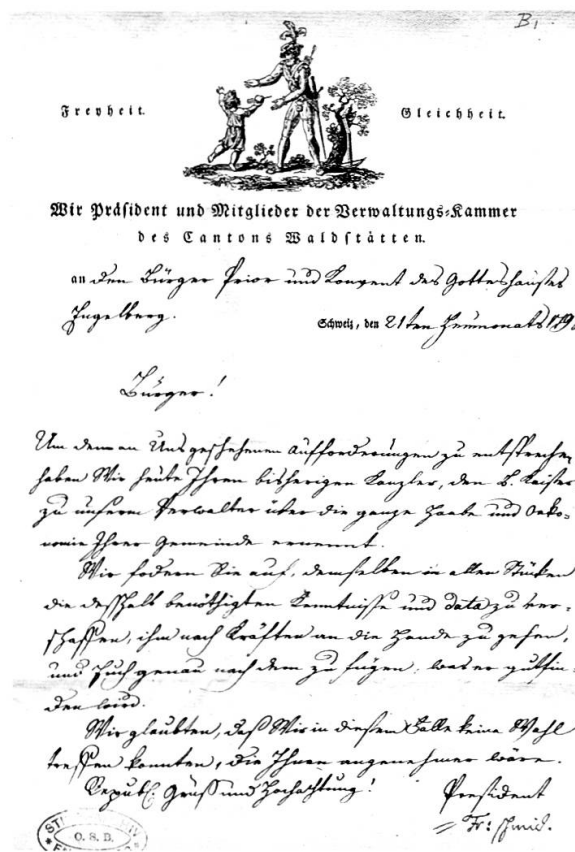 B,
Freyheit. Gleichheit.
Wir Präsident und Mitglieder der Verwaltungs-Kammer
des Cantons Waldstätten.
an den Bürger Prior und Konvent des Gotteshauses
Engelberg. Schweiz, den 21ten Heumonats 179
Bürger!
Um denen an Uns geschehenen Aufforderungen zu entsprechen,
haben Wir heute Ihren bisherigen Kanzler, den B. Kaiser
zu unserm Verwalter über die ganze Haabe und Oeko-
nomie Ihrer Gemeinde ernennt.
Wir fodern Sie auf, demselben in allen Stücken
die desshalb benöthigten Kenntnisse und data zu ver-
schaffen, ihm nach Kräften an die Hande zu gehen,
und sich genau nach dem zu fügen, was er gutfin-
den wird.
Wir glaubten, daß Wir in diesem Falle keine Wahl
treffen konnten, die Ihnen angenehmer wäre.
Republ. Gruß und Hochachtung! President
Fr: Schmid.
O. S. B.